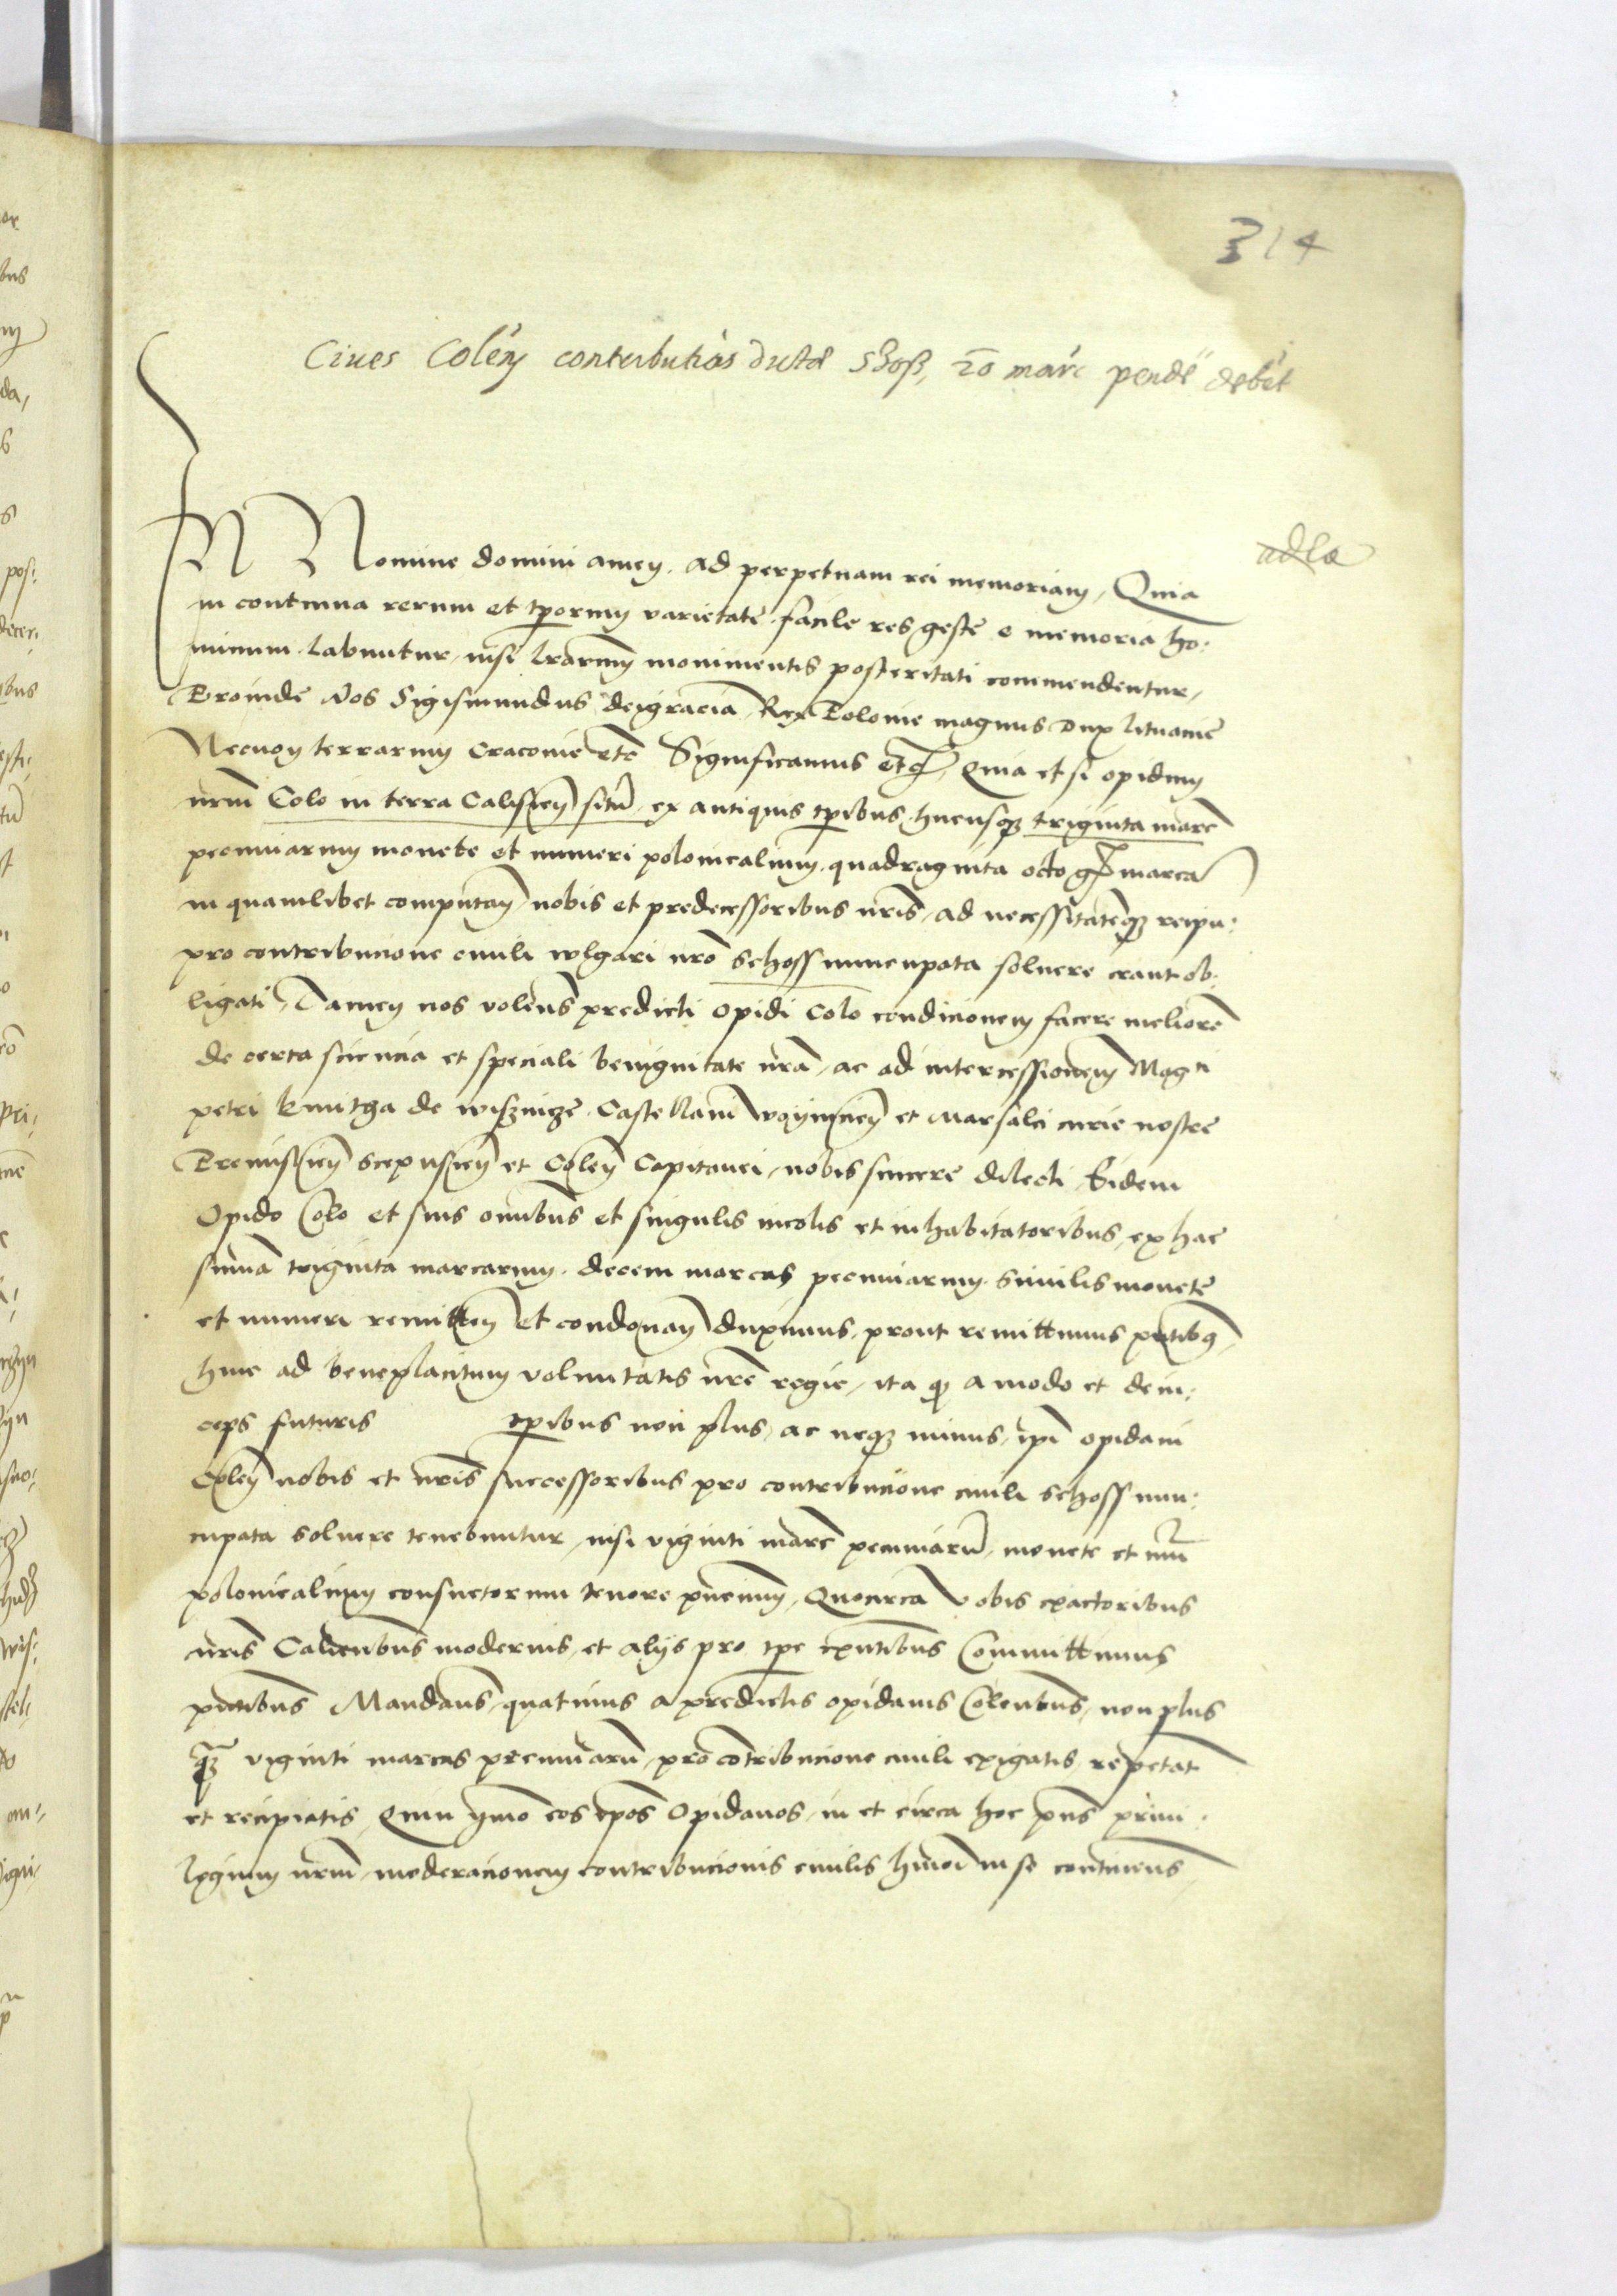 314
Ciues Coleñ contributiõs dictã Shoß, 20 marc pendẽ debẽt
adla
IN Nomine domini amen. ad perpetuam rei memoriam, Quia
in continua rerum et tp̄orum varietate facile res geste e memoria ho:
minum labuntur, nisi lr̄arum monimentis posteritati commendentur,
Proinde Nos Sigismundus deigracia Rex Polonie magnus Dux lituanie
Necnon terrarum Cracovie etc̄ Significamus etc̄, Quia et si opidum
nr̄m Colo in terra Calisieñ situ̅ ex antiquis tp̄ibus hucusq₃ triginta marc̄
pecuniarum monete et numeri polonicalium quadraginta octo gr̄ marca
in quamlibet computañ nobis et predecessoribus nr̄is, ad necessitatēq₃ reipu:
pro contribucione ciuili wlgari nr̄o Schoss nuncupata soluere erant ob:
ligati, Tamen nos volens predicti opidi Colo condicionem facere meliorē
de certa sciencia et speciali benignitate nr̄a, ac ad intercessionem Magci
petri kmitha de wisznize Castellani voyniceñ et Marsalci curie nostre
Premislieñ scepusieñ et Coleñ Capitanei, nobis sincere dilecti Eidem
Opido Colo et suis om̄ibus et singulis incolis et inhabitatoribus, ex hac
sum̄a triginta marcarum decem marcas pecuniarum similis monete
et numeri remitteñ et condonañ duximus, prout remittimus pn̄tib₉
huic ad beneplacitum voluntatis nr̄e regie, ita q̄ amodo et dein:
ceps futuris tp̄ibus non plus, ac neq₃ minus, ip̄i opidani
Coleñ nobis et nr̄is successoribus pro contribucione ciuili schoss nun:
cupata soluere tenebuntur, nisi viginti marc̄ pecuniaru̅, monete et nu̅i
polonicalium consuetorum tenore pn̄cium, Quocirca vobis exactoribus
nr̄is Calien̄bus modernis, et alijs pro tp̄e exn̄tibus Committimus
pn̄tibus Mandans quatinus a predictis opidanis Colen̄bus, non plus
q₃ viginti marcas pecuniaru̅, pro co̅tribucione ciuili exigatis, repetat̄
et recipiatis, Quin ymo eos ip̄os Opidanos, in et circa hoc pn̄s priui:
legium nr̄m, moderacionem contribucionis ciuilis hm̄oi in se continens,